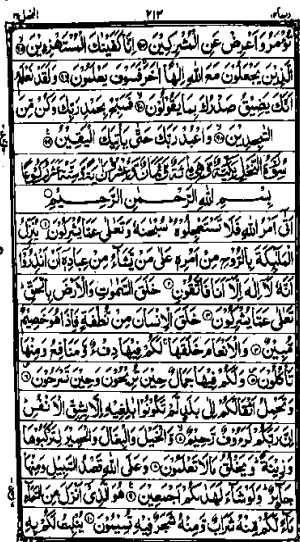 ربما ١٤ ٢١٢ النحل ١٦
تُؤْمَرُ وَأَعْرِضْ عَنِ الْمُشْرِكِينَ إِنَّا كَفَيْنَاكَ الْمُسْتَهْزِءِينَ
الَّذِينَ يَجْعَلُونَ مَعَ اللهِ إِلٰهًا آخَرَ فَسَوْفَ يَعْلَمُونَ وَلَقَدْ نَعْلَمُ
أَنَّكَ يَضِيقُ صَدْرُكَ بِمَا يَقُولُونَ فَسَبِّحْ بِحَمْدِ رَبِّكَ وَكُنْ مِّنَ
السّٰجِدِينَ وَاعْبُدْ رَبَّكَ حَتّٰى يَأْتِيَكَ الْيَقِينُ
سُورَةُ النَّحْلِ مَكِّيَّةٌ وَهِيَ مِائَةٌ وَثَمَانٌ وَعِشْرُونَ آيَةً وَسِتَّةَ عَشَرَ رُكُوعًا
بِسْمِ اللهِ الرَّحْمٰنِ الرَّحِيمِ
أَتٰى أَمْرُ اللهِ فَلَا تَسْتَعْجِلُوهُ سُبْحٰنَهُ وَتَعَالٰى عَمَّا يُشْرِكُونَ يُنَزِّلُ
الْمَلٰئِكَةَ بِالرُّوحِ مِنْ أَمْرِهِ عَلٰى مَنْ يَّشَاءُ مِنْ عِبَادِهِ أَنْ أَنْذِرُوا
أَنَّهُ لَا إِلٰهَ إِلَّا أَنَا فَاتَّقُونِ خَلَقَ السَّمٰوٰتِ وَالْأَرْضَ بِالْحَقِّ
تَعَالٰى عَمَّا يُشْرِكُونَ خَلَقَ الْإِنْسَانَ مِنْ نُّطْفَةٍ فَإِذَا هُوَ خَصِيمٌ
مُّبِينٌ وَالْأَنْعَامَ خَلَقَهَا لَكُمْ فِيهَا دِفْءٌ وَّمَنَافِعُ وَمِنْهَا
تَأْكُلُونَ وَلَكُمْ فِيهَا جَمَالٌ حِينَ تُرِيحُونَ وَحِينَ تَسْرَحُونَ
وَتَحْمِلُ أَثْقَالَكُمْ إِلٰى بَلَدٍ لَّمْ تَكُونُوا بٰلِغِيهِ إِلَّا بِشِقِّ الْأَنْفُسِ
إِنَّ رَبَّكُمْ لَرَءُوفٌ رَّحِيمٌ وَالْخَيْلَ وَالْبِغَالَ وَالْحَمِيرَ لِتَرْكَبُوهَا
وَزِينَةً وَيَخْلُقُ مَا لَا تَعْلَمُونَ وَعَلَى اللهِ قَصْدُ السَّبِيلِ وَمِنْهَا
جَائِرٌ وَلَوْ شَاءَ لَهَدٰىكُمْ أَجْمَعِينَ هُوَ الَّذِي أَنْزَلَ مِنَ السَّمَاءِ
مَاءً لَّكُمْ مِّنْهُ شَرَابٌ وَّمِنْهُ شَجَرٌ فِيهِ تُسِيمُونَ يُنْبِتُ لَكُمْ بِهِ